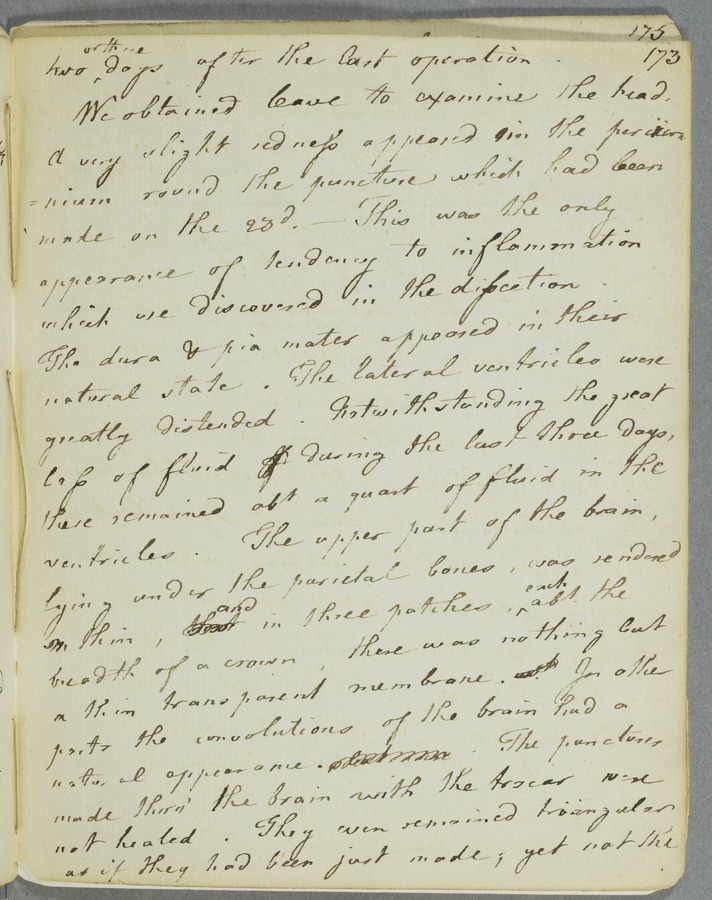 175
173
or three
two ^ days after the last operation.
We obtained leave to examine the head.
A very slight redness appeared in the pericra
=nium round the puncture which had been
made on the 23d. — This was the only
appearance of tendency to inflammation
which we discovered in the dissection.
The dura & pia mater appeared in their
natural state. The lateral ventricles were
greatly distended. Notwithstanding the great
loss of fluid during the last three days,
there remained abt a quart of fluid in the
ventricles. The upper part of the brain,
lying under the parietal bones, was rendered
thin, and in three patches, each abt the
breadth of a crown, there was nothing but
a thin transparent membrane. In other
parts the convolutions of the brain had a
natural appearance. The punctures
made thro' the brain with the trocar were
not healed. They even remained triangular
as if they had been just made; yet not the